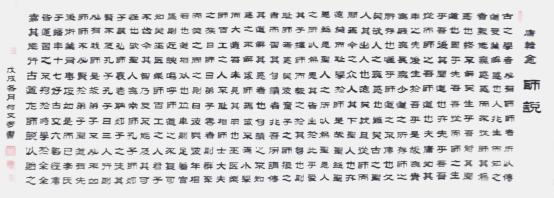 唐韓愈 師說
古之學者必有師師者所以傳
道受業解惑也人非生而知之
者孰能無惑惑而不從師其為
惑也終不解矣生乎吾前其聞
道也固先乎吾吾從而師之生
乎吾後其聞道也亦先乎吾吾
從而師之吾師道也夫庸知其
年之先後生於吾乎是故無貴
無賤無長無少道之所存師之
所存也嗟乎師道之不傳也久
矣欲人之無惑也難矣古之聖
人其出人也遠矣猶且從師而
問焉今之眾人其下聖人也亦
遠矣而恥學於師是故聖益聖
愚益愚聖人之所以為聖愚人
之所以為愚其皆出於此乎愛
其子擇師而教之於其身也則
恥師焉惑矣彼童子之師授之
書而習其句讀者非吾所謂傳
其道解其惑者也句讀之不知
惑之不解或師焉或不焉小學
而大遺吾未見其明也巫醫樂
師百工之人不恥相師士大夫
之族曰師曰弟子云者則群聚
而笑之問之則曰彼與彼年相
若也道相似也位卑則足羞官
盛則近諛嗚呼師道之不復可
知矣巫醫樂師百工之人君子
不齒今其智乃反不能及其可
怪也歟聖人無常師孔子師郯
子萇弘師襄老聃郯子之徒其
賢不及孔子孔子曰三人行則
必有我師是故弟子不必不如
師師不必賢於弟子聞道有先
後術業有專攻如是而已李氏
子蟠年十七好古文六藝經傳
皆通習之不拘於時學於余余
嘉其能行古道作師說以貽之
戊戌冬月何文書